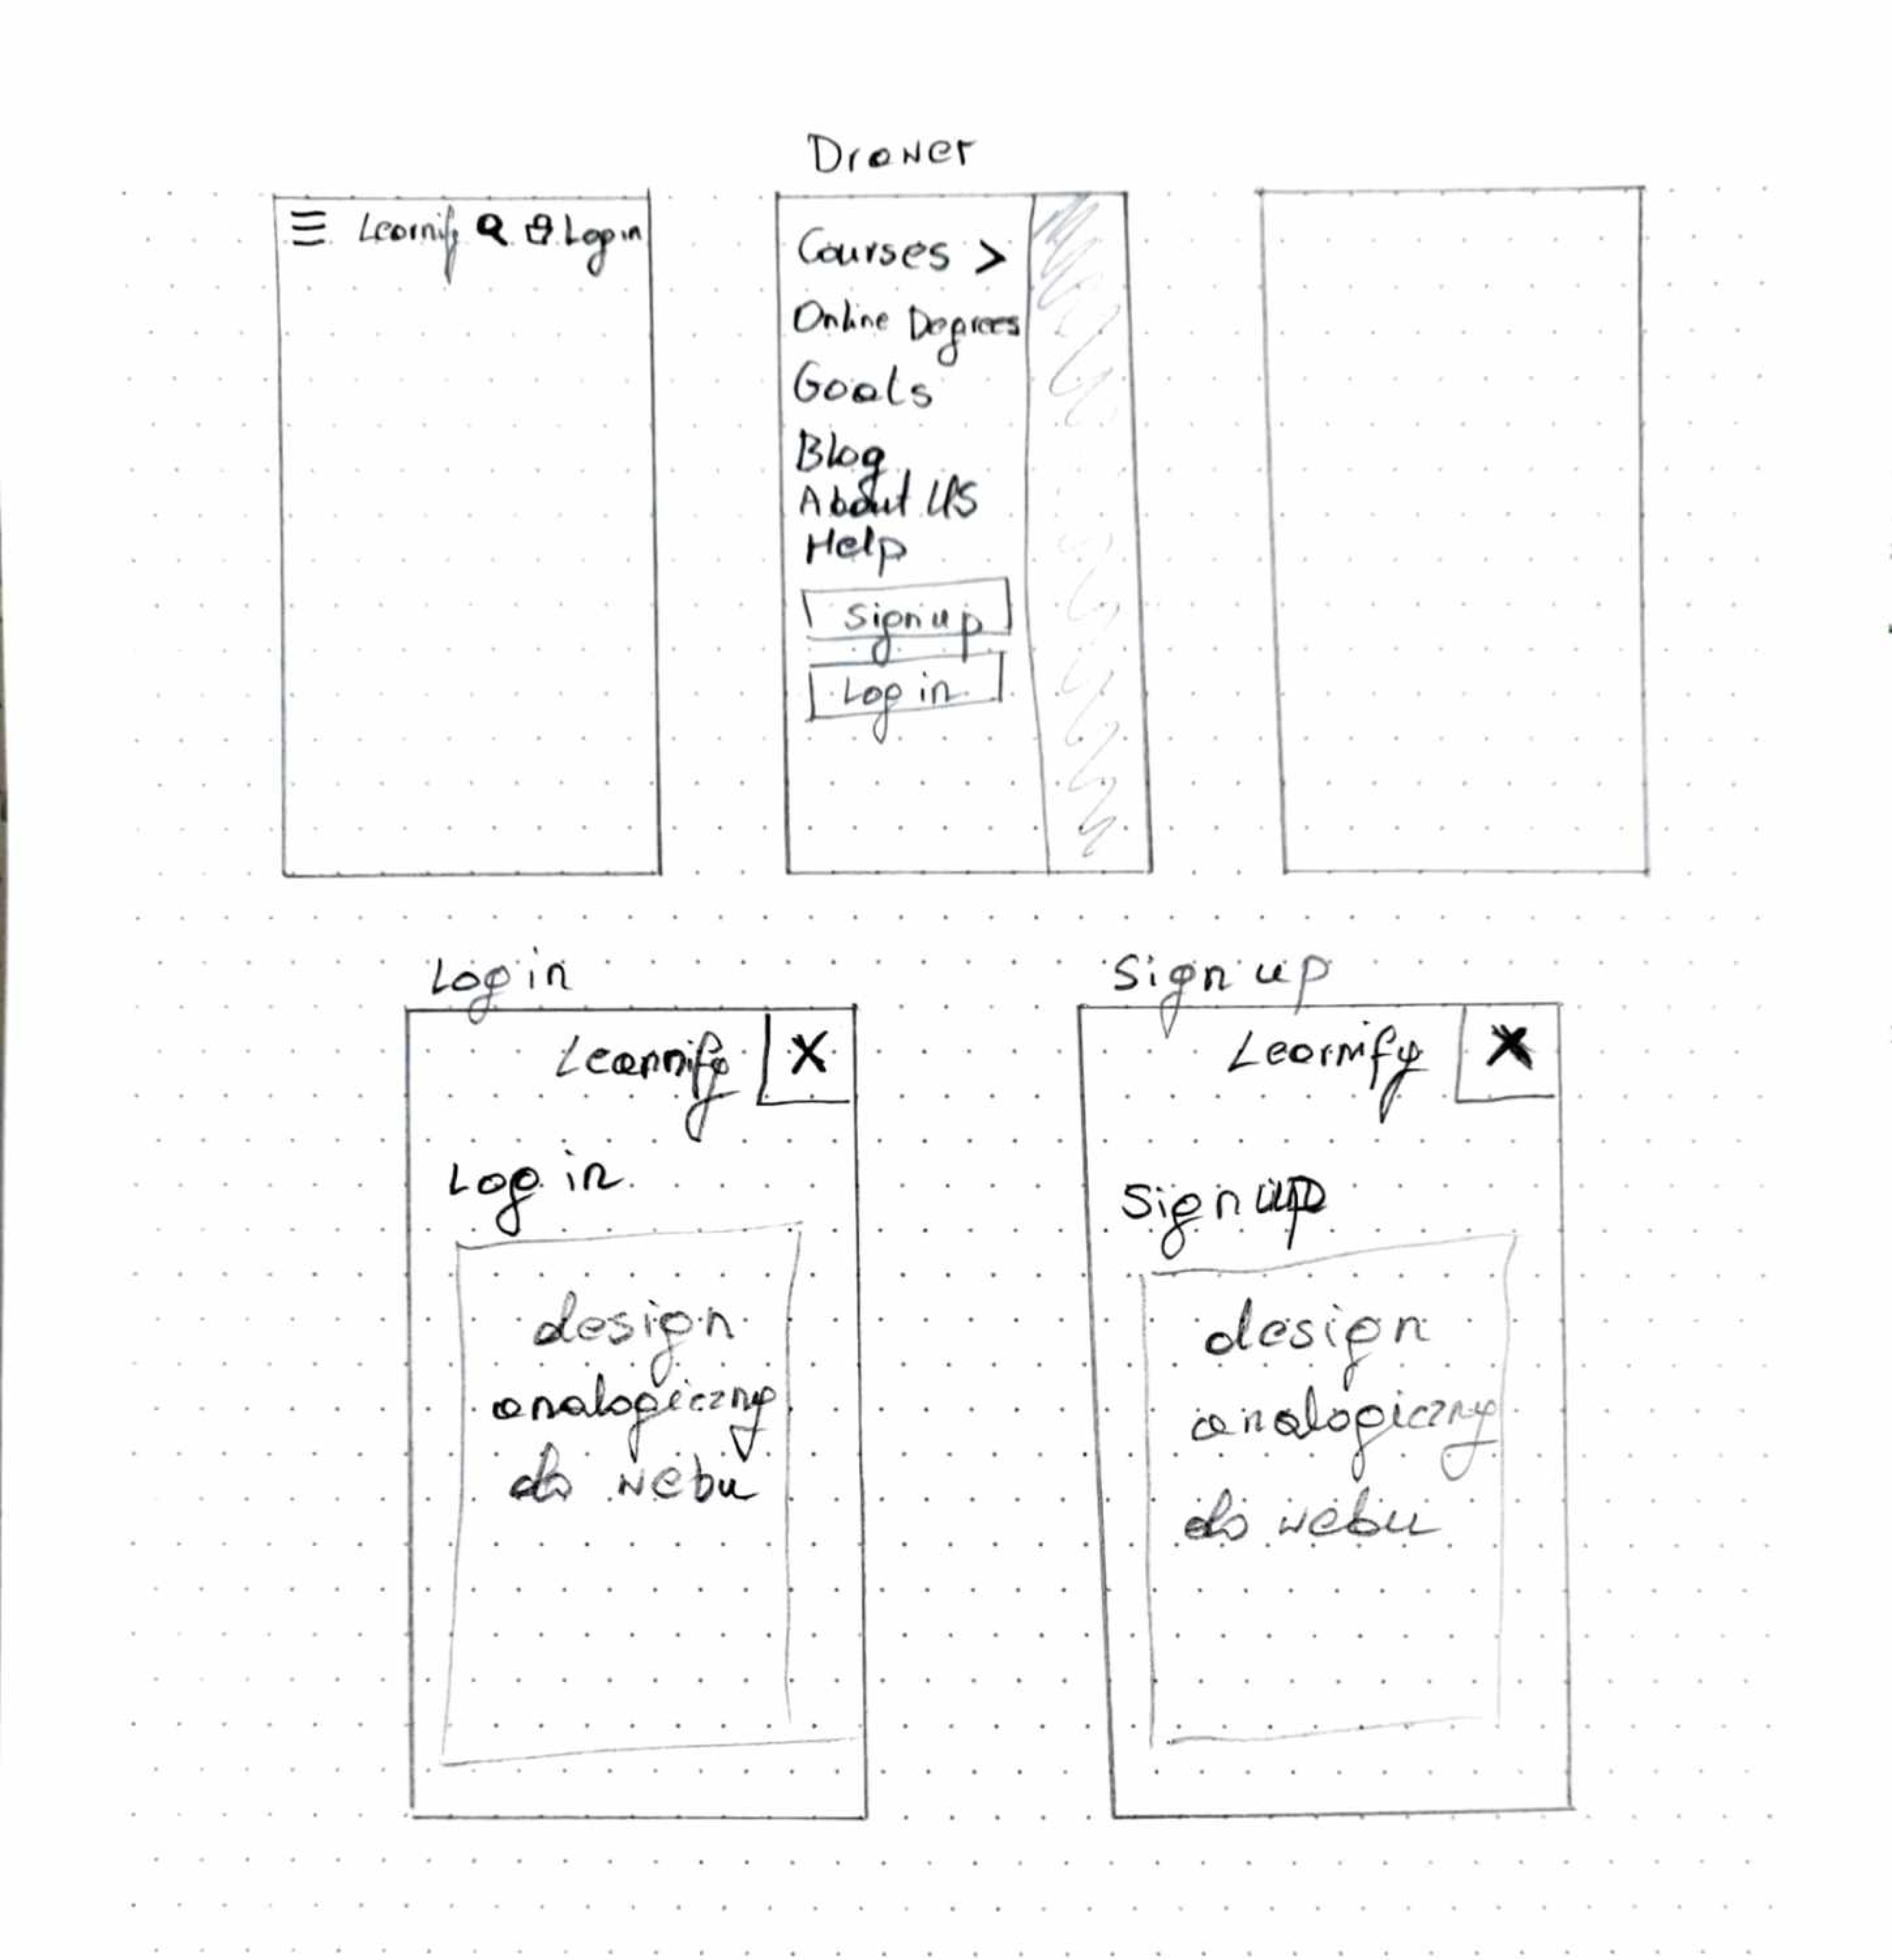 Drawer
Learnify Login
Courses >
Online Degrees
Goals
Blog
About US
Help
Sign up
Log in
Log in
Learnify X
Log in
design
analogiczny
do webu
Sign up
Learnify X
Sign up
design
analogiczny
do webu